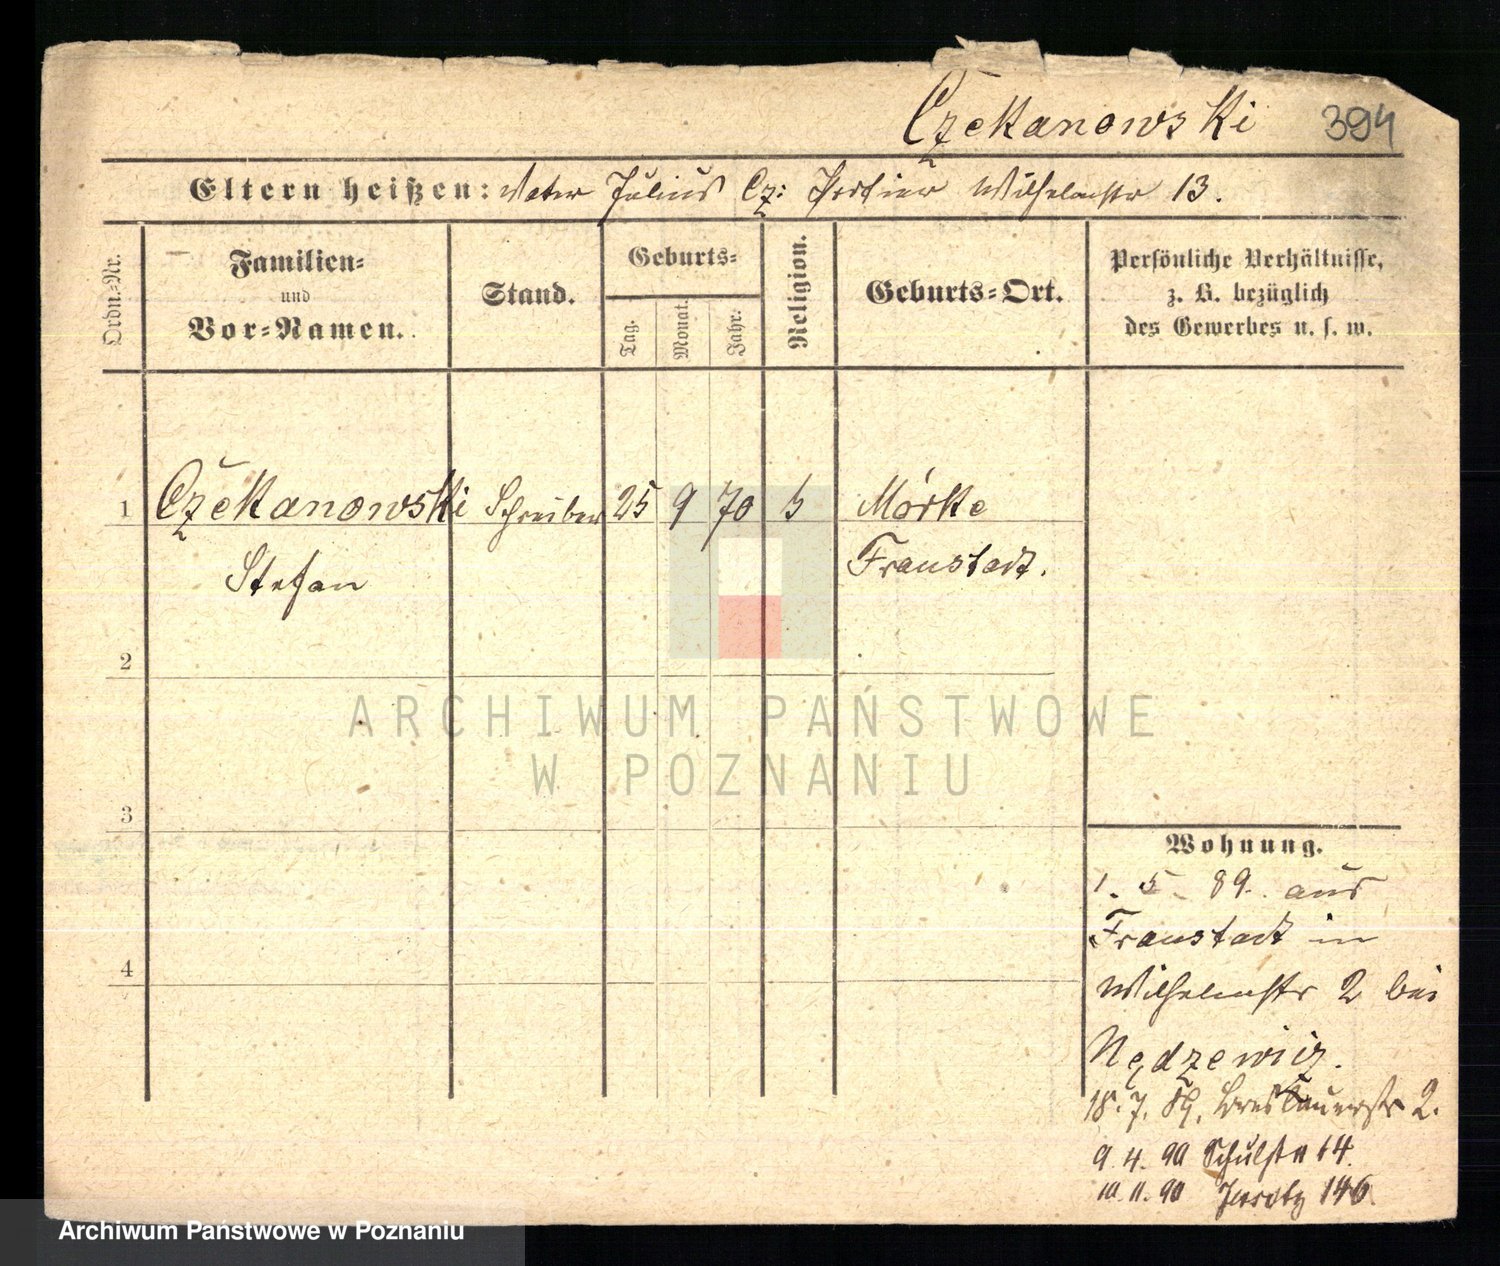 Czekanowski 394
Eltern heißen: Vater Julius Cz: Portier Wilhelmstr 13.
Ordn.-Nr.
Familien-
und
Vor-Namen.
Stand.
Geburts-
Tag.
Monat.
Jahr.
Religion.
Geburts-Ort.
Persönliche Verhältnisse,
z. B. bezüglich
des Gewerbes u. s. w.
1 Czekanowski Schreiber 25 9 70 Mórke
Stefan Fraustadt.
2
3
4
Wohnung.
1. 5. 89. aus
Fraustadt in
Wilhelmstr 2 bei
Nędzewicz.
18. 7. 89. Breslauerstr 2.
9. 4. 90 Schulstr 14.
10. 11. 90 Jersitz 146.
ARCHIWUM PAŃSTWOWE
W POZNANIU
Archiwum Państwowe w Poznaniu